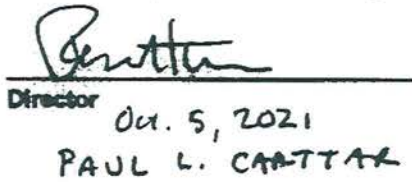 Director
Oct. 5, 2021
PAUL L. CARTTAR